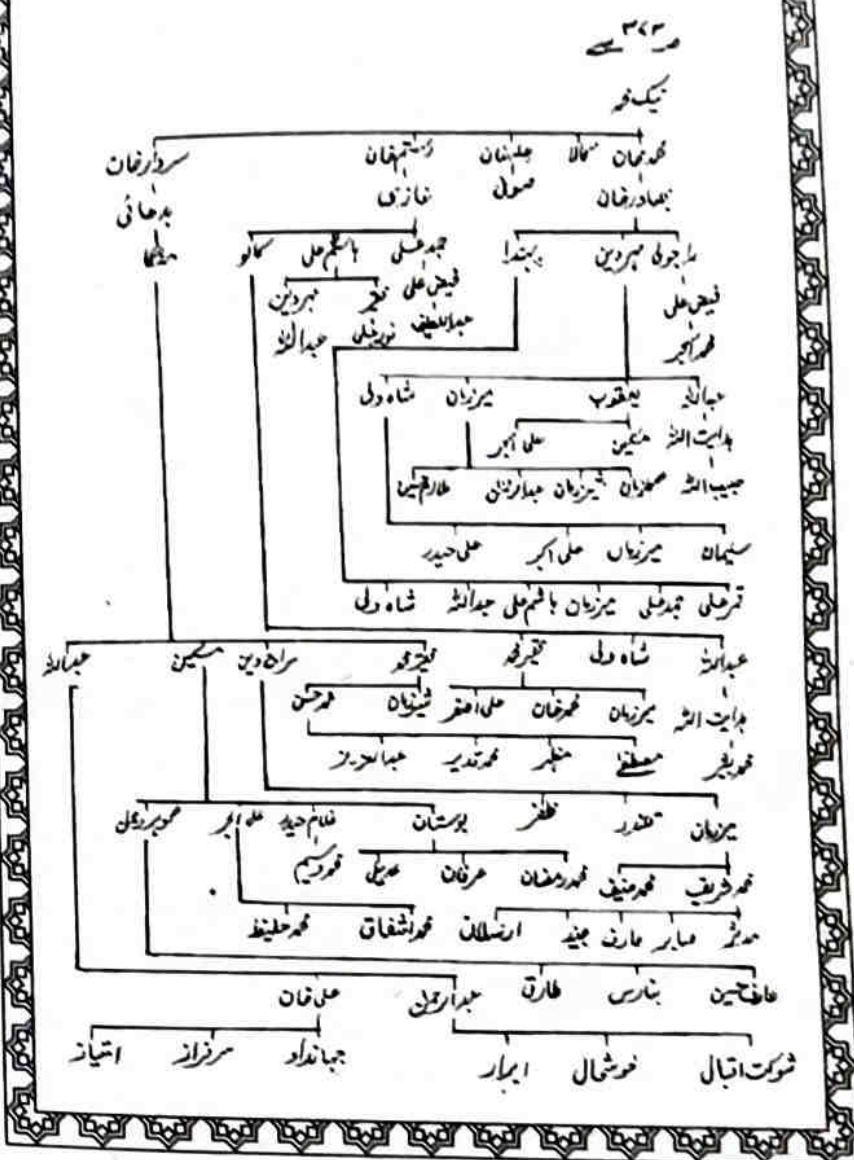 ص ۳۷۳ سے
نیک محمد
محمد خان سمالا خان رستم خان سردار خان
بہادر خان غازی بدھائی
راجولی مہردین پہندا جمد علی ہاشم علی کمالو
فیض علی فیض علی فقیر مہردین
محمد اکبر عبداللطیف نور علی عبداللہ
عبداللہ یعقوب میرزبان شاہ ولی
ہدایت اللہ مسکین علی اکبر
حبیب اللہ شیرزبان عبدالرزاق
سلیمان میرزبان علی اکبر علی حیدر
قمر علی میرزبان ہاشم علی عبداللہ شاہ ولی
عبداللہ شاہ ولی فقیر محمد فقیر محمد سراج دین مسکین عبداللہ
ہدایت اللہ میرزبان محمد خان علی اصغر شیرزبان محمد حسن
محمد بشیر مصطفےٰ مظہر محمد قدیر عبدالعزیز
میرزبان قلندر ظفر بوستان غلام حیدر علی اکبر
محمد شریف محمد حنیف محمد رمضان عرفان عدیل محمد وسیم
مدثر صابر عارف جنید ارسلان محمد اشفاق محمد حفیظ
عارف حسین بنارس طارق عبدالرحمٰن علی خان
شوکت اقبال خوشحال ابرار جہانداد سرفراز امتیاز